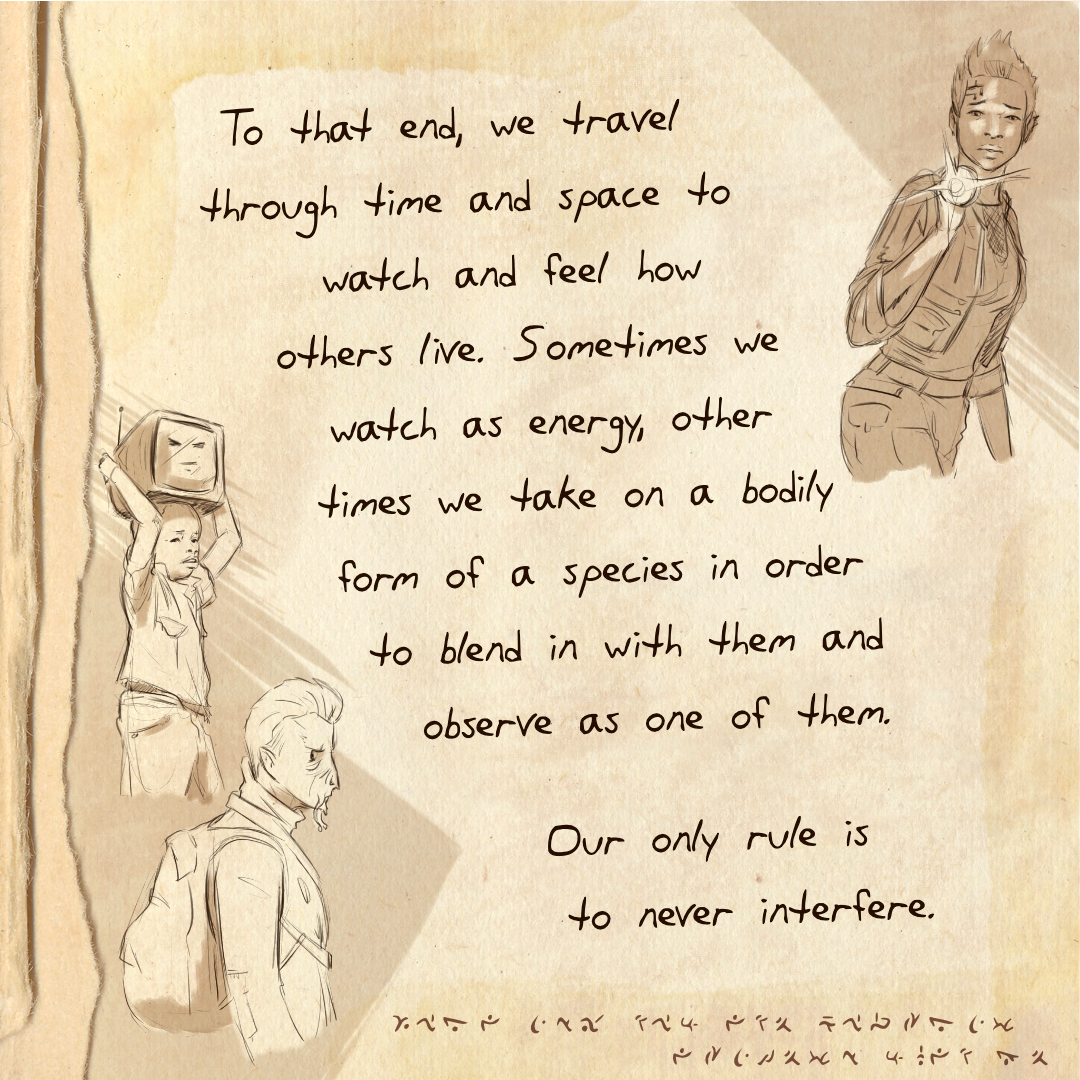 To that end, we travel
through time and space to
watch and feel how
others live. Sometimes we
watch as energy, other
times we take on a bodily
form of a species in order
to blend in with them and
observe as one of them.
Our only rule is
to never interfere.